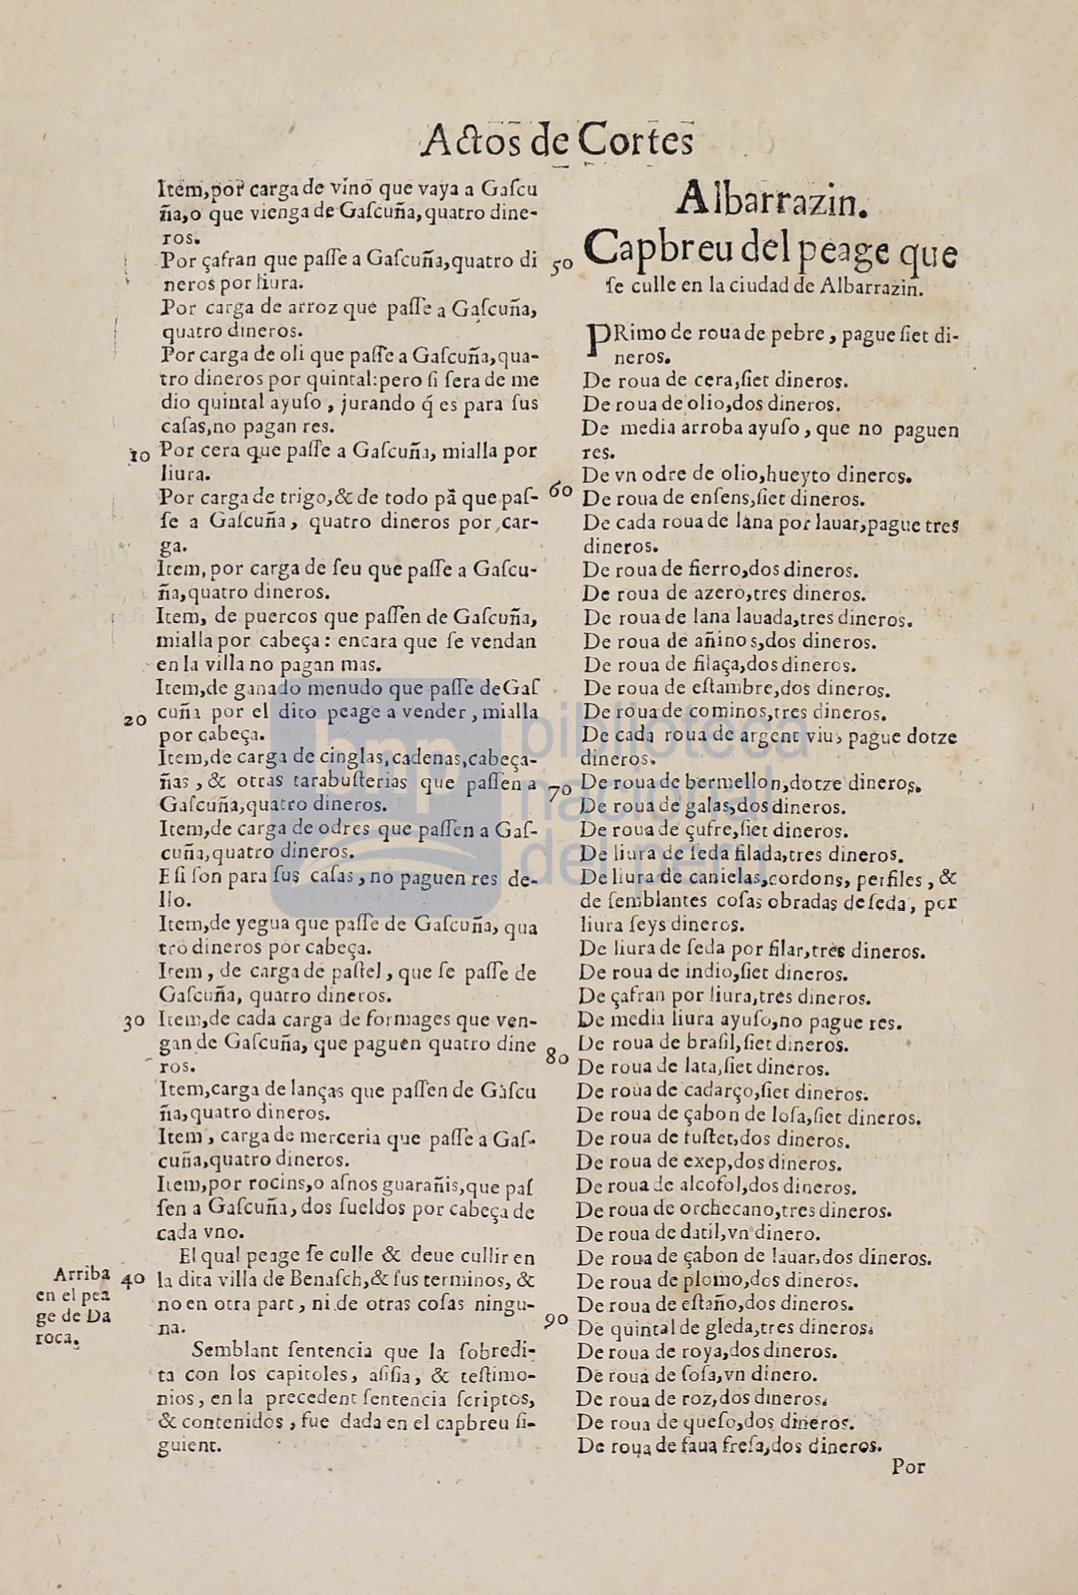 Actos de Cortes
Item,por carga de vino que vaya a Gaſcu
ña,o que vienga de Gaſcuña,quatro dine-
ros.
Por çafran que paſſe a Gaſcuña,quatro di
neros por liura.
Por carga de arroz que paſſe a Gaſcuña,
quatro dineros.
Por carga de oli que paſſe a Gaſcuña,qua-
tro dineros por quintal:pero ſi ſera de me
dio quintal ayuſo , jurando q̃ es para ſus
caſas,no pagan res.
10 Por cera que paſſe a Gaſcuña, mialla por
liura.
Por carga de trigo,& de todo pã que paſ-
ſe a Gaſcuña, quatro dineros por car-
ga.
Item, por carga de ſeu que paſſe a Gaſcu-
ña,quatro dineros.
Item, de puercos que paſſen de Gaſcuña,
mialla por cabeça: encara que ſe vendan
en la villa no pagan mas.
Item,de ganado menudo que paſſe de Gaſ
20 cuña por el dito peage a vender , mialla
por cabeça.
Item,de carga de cinglas,cadenas,cabeça-
ñas , & otras tarabuſterias que paſſen a
Gaſcuña,quatro dineros.
Item,de carga de odres que paſſen a Gaſ-
cuña,quatro dineros.
E ſi ſon para ſus caſas , no paguen res de-
llo.
Item,de yegua que paſſe de Gaſcuña, qua
tro dineros por cabeça.
Item , de carga de paſtel , que ſe paſſe de
Gaſcuña, quatro dineros.
30 Item,de cada carga de formages que ven-
gan de Gaſcuña, que paguen quatro dine
ros.
Item,carga de lanças que paſſen de Gaſcu
ña,quatro dineros.
Item , carga de merceria que paſſe a Gaſ-
cuña,quatro dineros.
Item,por rocins,o aſnos guarañis,que paſ
ſen a Gaſcuña, dos ſueldos por cabeça de
cada vno.
El qual peage ſe culle & deue cullir en
40 la dita villa de Benaſch,& ſus terminos, &
no en otra part , ni de otras coſas ningu-
na.
Semblant ſentencia que la ſobredi-
ta con los capitoles, aſiſia, & teſtimo-
nios , en la precedent ſentencia ſcriptos,
& contenidos , fue dada en el capbreu ſi-
guient.
Arriba
en el pea
ge de Da
roca.
Albarrazin.
50 Capbreu del peage que
ſe culle en la ciudad de Albarrazin.
PRimo de roua de pebre , pague ſiet di-
neros.
De roua de cera,ſiet dineros.
De roua de olio,dos dineros.
De media arroba ayuſo , que no paguen
res.
De vn odre de olio,hueyto dineros.
60 De roua de enſens,ſiet dineros.
De cada roua de lana por lauar,pague tres
dineros.
De roua de fierro,dos dineros.
De roua de azero,tres dineros.
De roua de lana lauada,tres dineros.
De roua de añinos,dos dineros.
De roua de filaça,dos dineros.
De roua de eſtambre,dos dineros.
De roua de cominos,tres dineros.
De cada roua de argent viu, pague dotze
dineros.
70 De roua de bermellon,dotze dineros.
De roua de galas,dos dineros.
De roua de çufre,ſiet dineros.
De liura de ſeda filada,tres dineros.
De liura de canielas,cordons, perfiles , &
de ſemblantes coſas obradas de ſeda , por
liura ſeys dineros.
De liura de ſeda por filar,tres dineros.
De roua de indio,ſiet dineros.
De çafran por liura,tres dineros.
De media liura ayuſo,no pague res.
De roua de braſil,ſiet dineros.
80 De roua de lata,ſiet dineros.
De roua de cadarço,ſiet dineros.
De roua de çabon de loſa,ſiet dineros.
De roua de fuſtet,dos dineros.
De roua de exep,dos dineros.
De roua de alcofol,dos dineros.
De roua de orchecano,tres dineros.
De roua de datil,vn dinero.
De roua de çabon de lauar,dos dineros.
De roua de plomo,dos dineros.
De roua de eſtaño,dos dineros.
90 De quintal de gleda,tres dineros.
De roua de roya,dos dineros.
De roua de ſoſa,vn dinero.
De roua de roz,dos dineros.
De roua de queſo,dos dineros.
De roua de faua freſa,dos dineros.
Por
bnp biblioteca
nacional
del perú